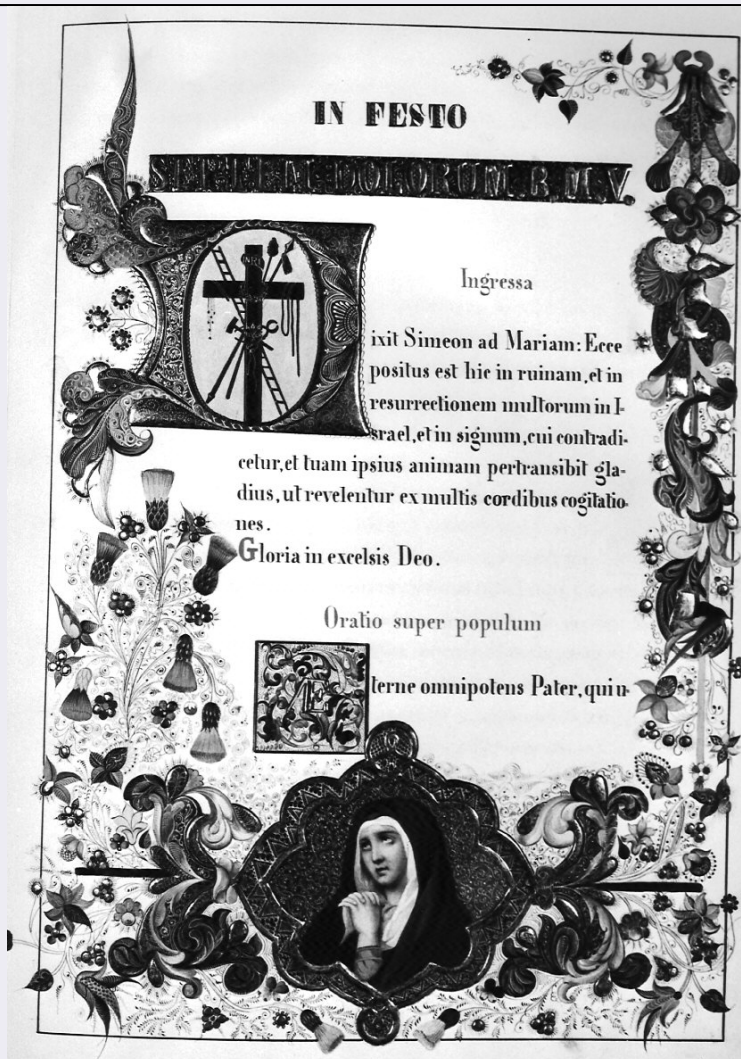 IN FESTO
SEPTEM DOLORUM B. M. V.
Ingressa
Dixit Simeon ad Mariam: Ecce
positus est hic in ruinam, et in
resurrectionem multorum in I-
srael, et in signum, cui contradi-
cetur, et tuam ipsius animam pertransibit gla-
dius, ut revelentur ex multis cordibus cogitatio-
nes.
Gloria in excelsis Deo.
Oratio super populum
Æterne omnipotens Pater, qui u-